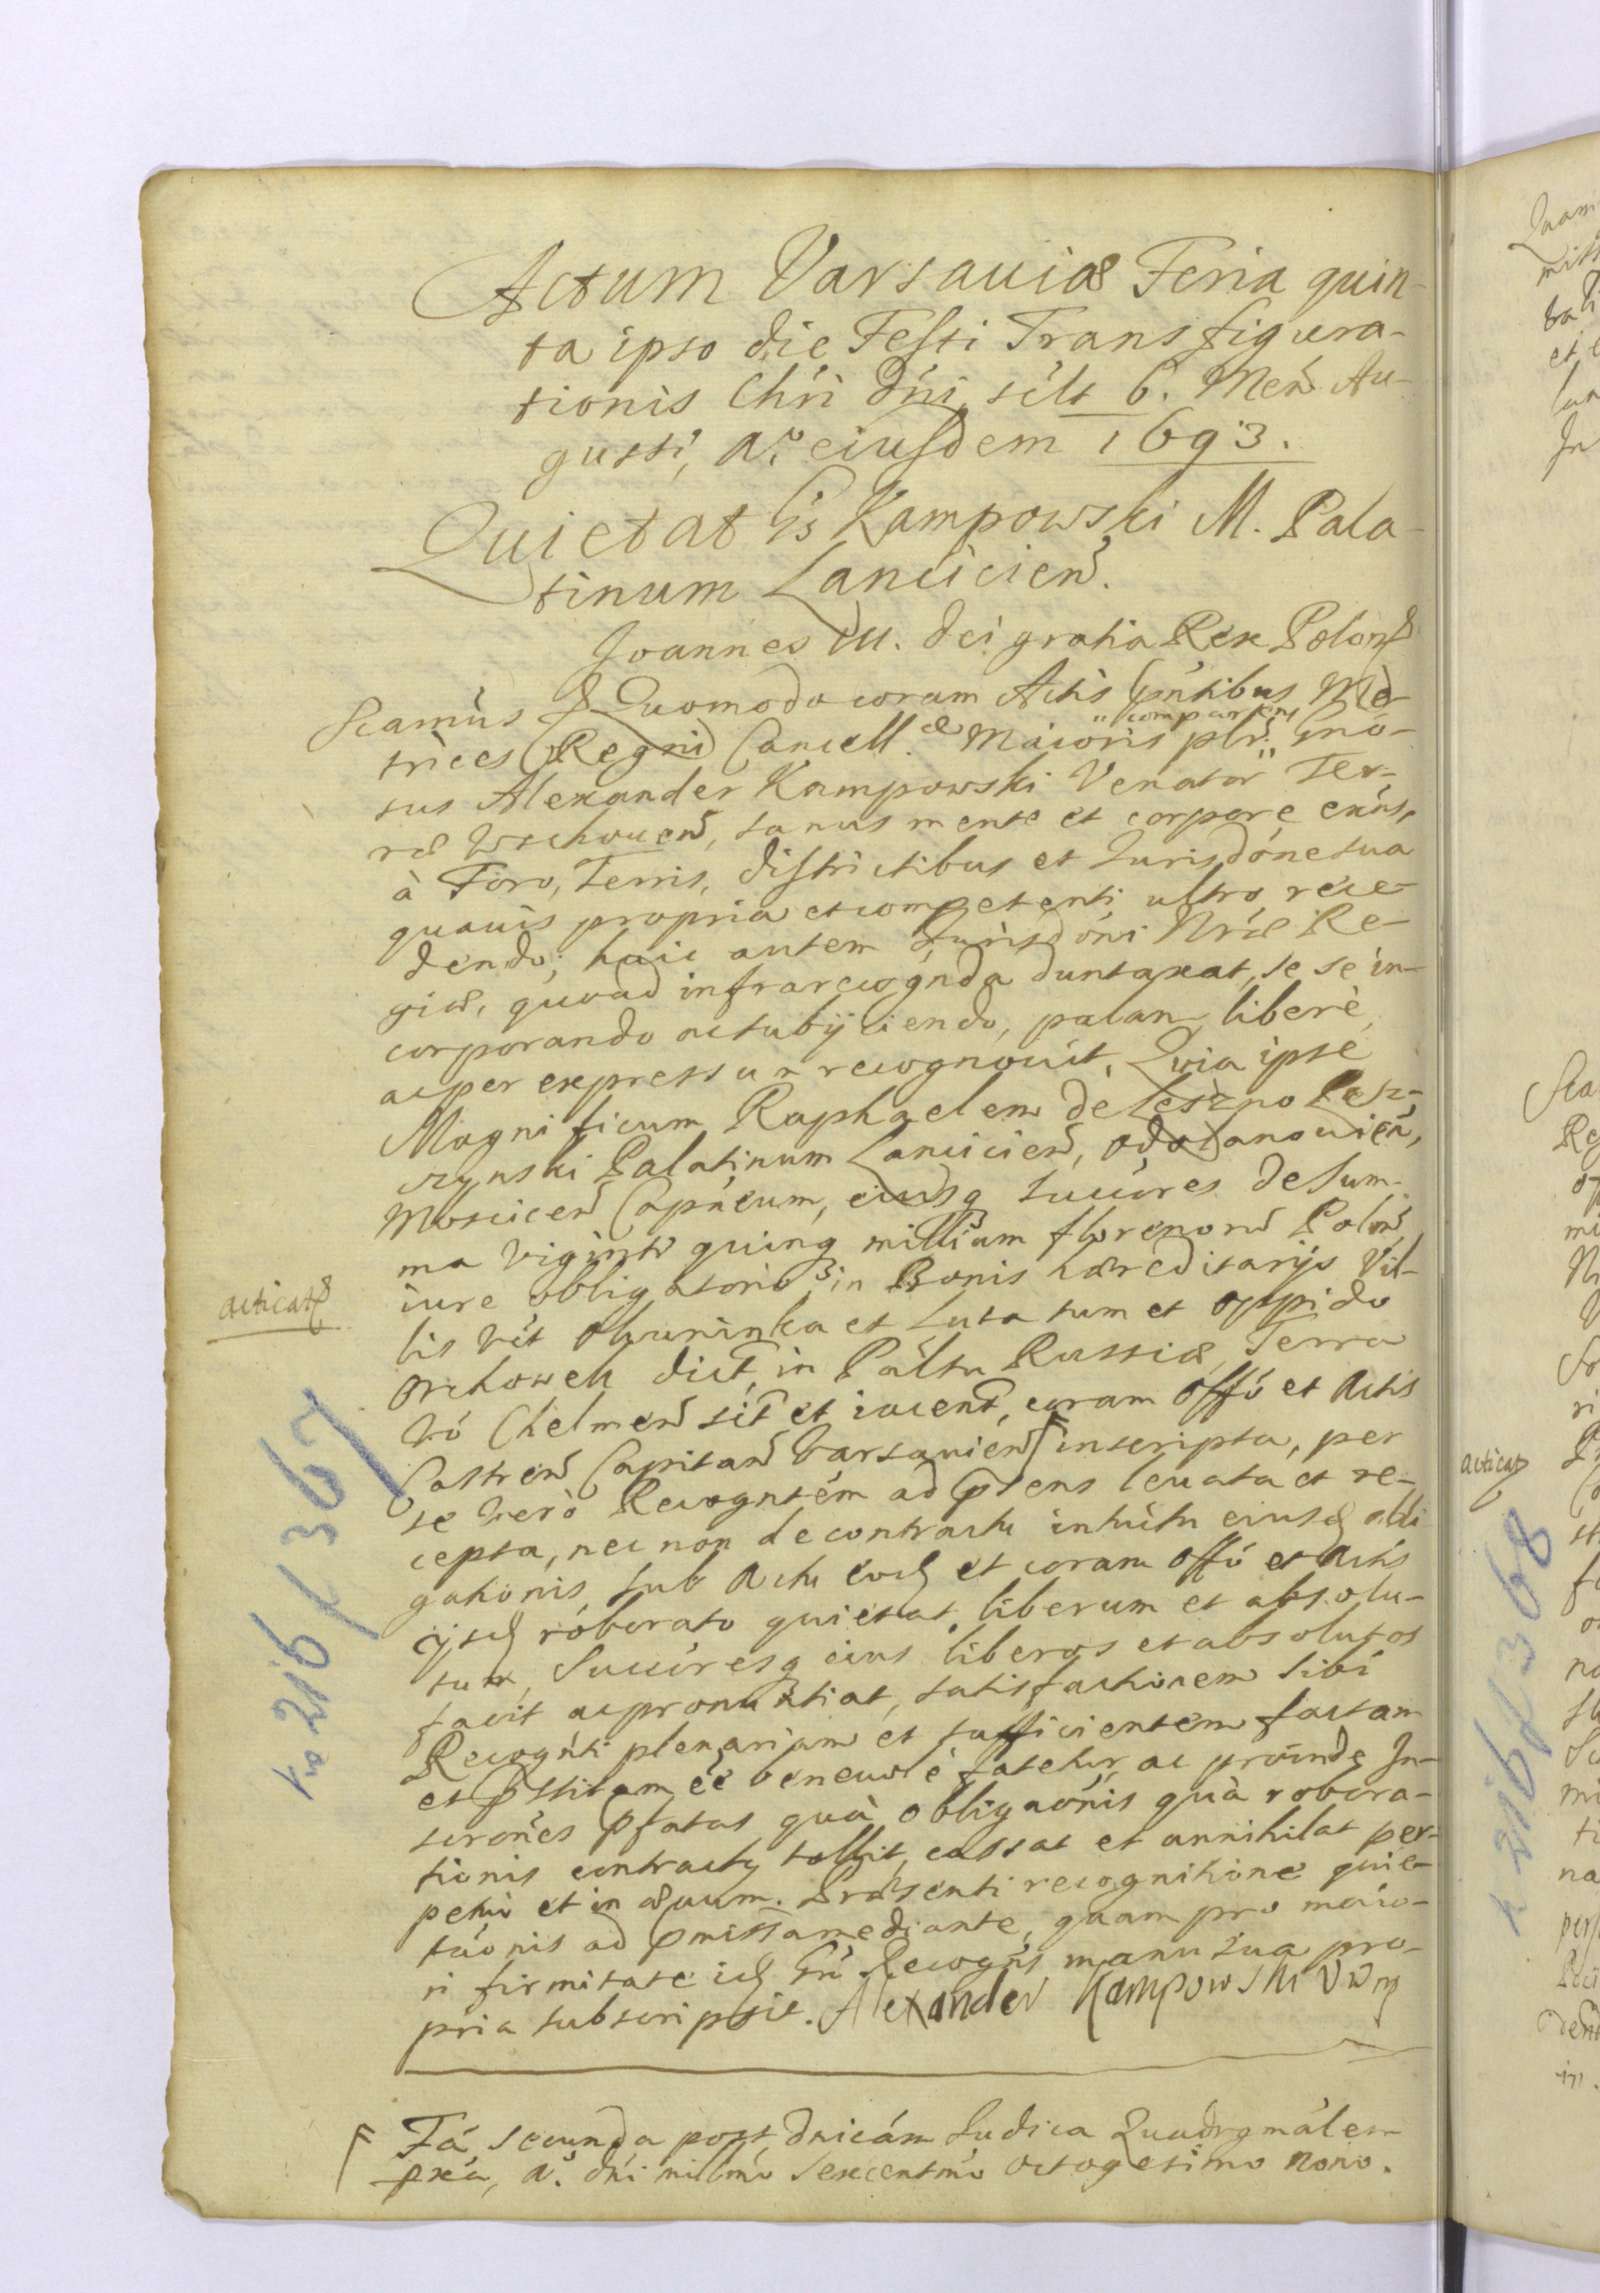 Actum Varsaviæ Feria quin-
ta ipso die Festi Transfigura-
tionis Chri Dni, scilt 6. Mens Au-
gusti, A.º eiusdem 1693.
Quietat Gs Kampowski M. Pala-
tinum Lanciciens.
Joannes III. Dei gratia Rex Poloniæ
Scamus &. Quomodo coram Actis pntibus Me-
trices Regni Cancell.æ Maioris plr. comparens Gnò-
sus Alexander Kampowski Venator Ter-
ræ Wschovens, sanus mente et corpore exns,
à Foro, Terris, districtibus et Jurisdóne sua
quavis propria et competenti ultro rece-
dendo; huic autem Jurisdóni Nræ Re-
giæ, quoad infrarecognda duntaxat, se se in-
corporando ac subÿciendo, palam, liberè,
ac per expressum recognovit. Quia ipse
Magnificum Raphaelem de Leszno Lesz-
czynski Palatinum Lanciciens, Odolanoviens,
Mosciscens Capneum, eiusq succres de sum-
ma viginti quinq millium florenorum Polm
iure obligatorio in Bonis hæreditarÿs Vil-
lis vct Olwninka et Luta tum et oppido
Orchowek dict, in Palttu Russiæ, Terra
vó Chelmens sit et iacent, coram Offó et Actis
Castrens Capitan Varsaviens F inscripta, per
se verò Recogntém ad pñens levata et re-
cepta, nec non de contractu intuitu eiusd obli
gationis, sub Actu eod et coram Offó et Actis
ÿsd roborato quietat, liberum et absolu-
tum, Succresq eius liberos et absolutos
facit ac pronuntiat, satisfactionem sibi
Recognti plenariam et sufficientem factam
et pstitam éé benevolè fatetur, ac proinde In-
scrones pfatas quà obligaónis quà robora-
tionis contractus tollit, cassat et annihilat per-
petuò et in ævum. Præsenti recognitione quie-
taónis ad pmissa mediante, quam pro maio-
ri firmitate id Gñ Recogns manu sua pro-
pria subscripsit. Alexander Kampowski
acticat
k 216 / 367
F Fá secunda post Dnicám Judica Quadrgmálem
pxa, A.º Dñi millmó Sexcentmó octogesimo nono.
acticat
k 216 / 368